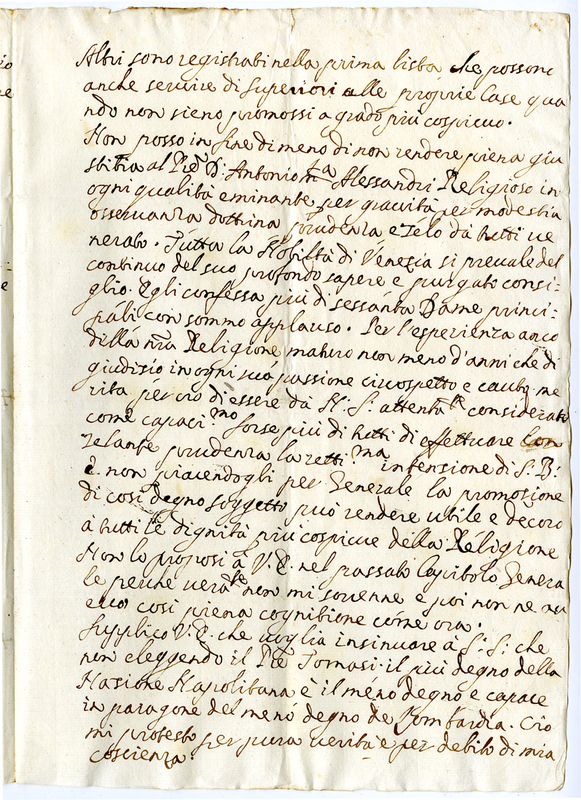 Altri sono registrati nella prima lista che possono
anche servire di Superiori alle proprie Case qua
ndo non sieno promossi a grado più cospicuo.
Non posso in fine di meno di non rendere piena giu
stitia al Pre D. Antonio Alessandri Religioso in
ogni qualità eminante per gravità per modestia
osservanza dottrina prudenza e zelo dà tutti ve
nerato. Tutta la Nobiltà di Venezia si prevale del
continuo del suo profondo sapere e purgato consi-
glio. Egli confessa più di sessanta Dame princi-
pali con sommo applauso. Per l'esperienza anco
della nra Religione maturo non meno d'anni che di
giudisio in ogni sua passione circospetto e cauto me
rita per ciò di essere dà N. S. attentate considerato
come capacimo forse più di tutti di effettuare con
zelante prudenza la rettima intensione di S. B:
è non piacendogli per Generale la promosione
di così degno soggetto può rendere utile e decoro
à tutte le dignità più cospicue della Religione
Non lo proposi à V. E. nel passato Capitolo Genera
le perche verate non mi sovenne e poi non ne
così piena cognitione come ora.
Supplico V. E. che voglia insinuare à S. S. che
non eleggendo il Pre Tomasi: il più degno della
Nasione Napolitana è il méno degno e capace
in paragone del menó degno de Lombardia. Ciò
mi protesto per pura verità e per debito di mia
coscienza.